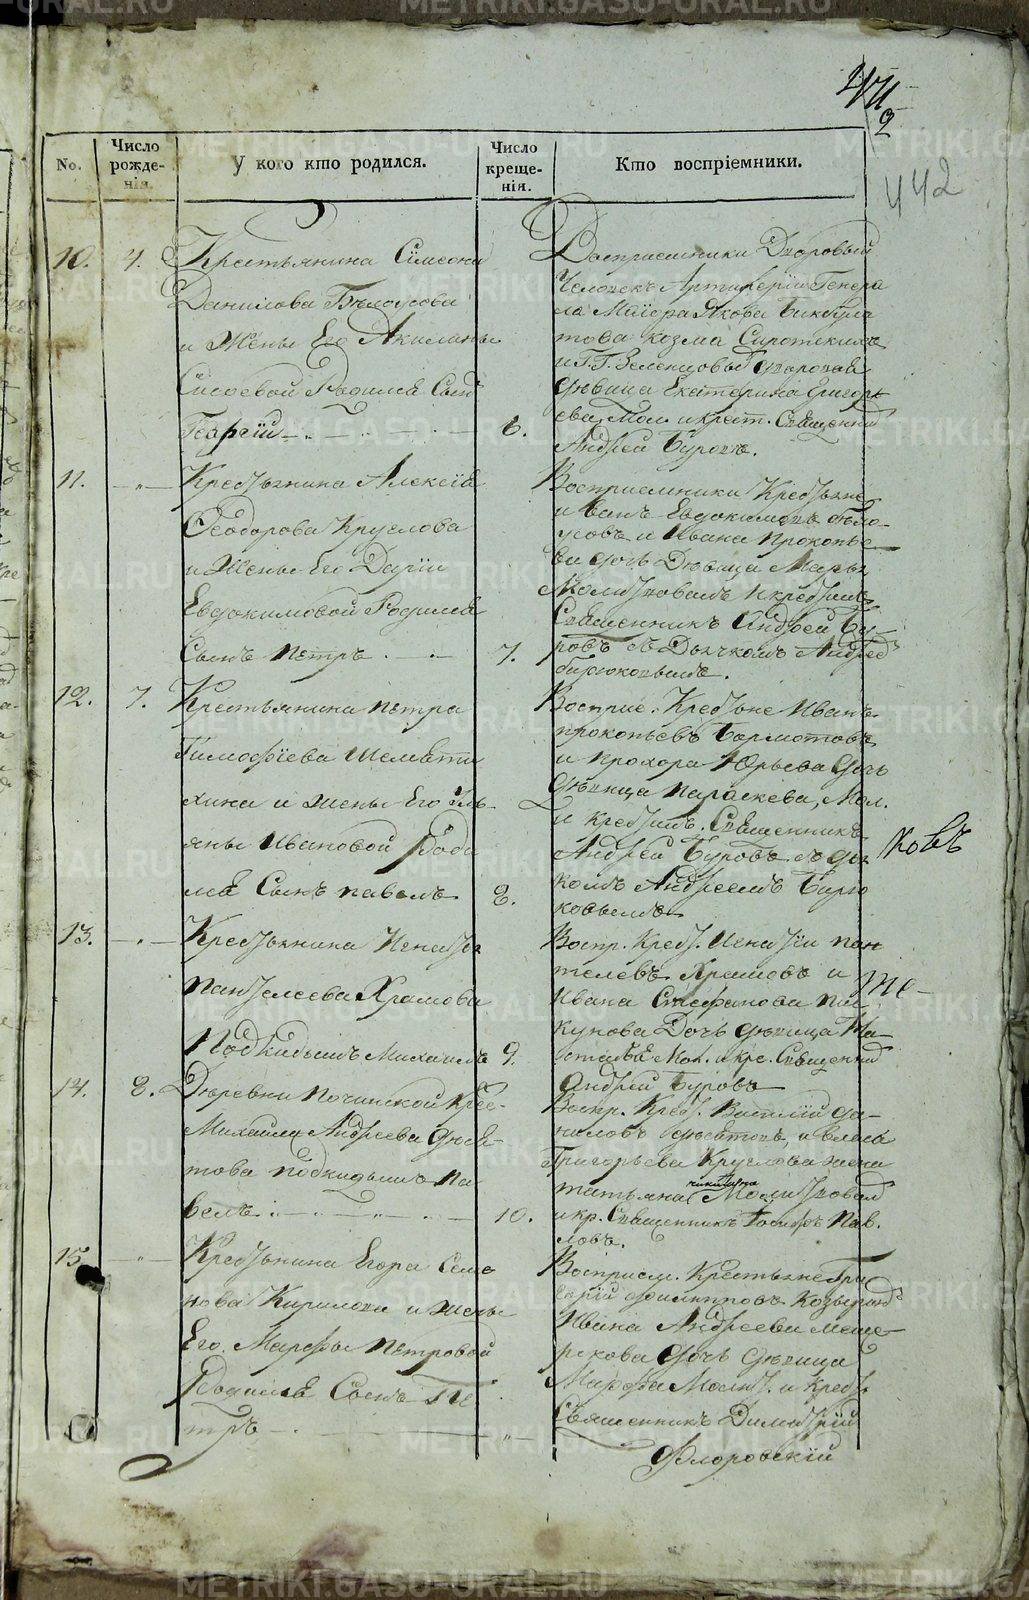 442
No.
Число рожде-нія.
У кого кто родился.
Число креще-нія.
Кто воспріемники.
10. 4. Крестьянина Симеона
Данилова Бѣлоусова
и Жены Его Акилины
Сисоевой Родился Сынъ
Георгій 6.
Воспріемники Дворовый
Человекъ Артилеріи Генера
ла Маіора Якова
това Козма
и Г. Г. Зеленцовы дворовая
дѣвица Екатерина Григорь
ева, Мол. и крест. Священни
Андрей Буровъ.
11. Крестьянина Алексія
Ѳеодорова Круглова
и Жены Его Даріи
Евдокимовой Родился
Сынъ Петръ 7.
Воспріемники Крестьяне
Иванъ Евдокимовъ Бѣло
усовъ и Ивана Прокопье
ва дочь Дѣвица Марья
Молитвовалъ и крестилъ
Священникъ Андрей Бу
ровъ съ Дьячкомъ Андреемъ
Бирюковымъ.
12. 7. Крестьянина Петра
Тимофѣева
хина и жены Его Улья
яны Ивановой Роди
лся Сынъ Павелъ 8.
Воспріе. Крестьяне Иванъ
Прокопьевъ Бармотовъ
и Прохора Юрьева дочь
дѣвица Параскева, Мол.
и крестилъ. Священникъ
Андрей Буровъ съ дья
ковъ
комъ Андреемъ Бирю
ковымъ
13. Крестьянина Игнатья
Пантелеева Храмова
Подкидышъ Михаилъ 9.
Воспр. Крест. Игнатій Пан
телевъ Храмовъ и
Ивана Стефанова
кунова Дочь дѣвица На-
сталья Мол. и кре. Священни
Андрей Буровъ
14. 8. Деревни Починской Крес-
Михайла Андреева
това подкидышъ Па
велъ 10.
Воспр. Крест. Василій Да-
ниловъ и Власа
Григорьева Круглова жена
татьяна Никитина Молитвовал
и кр. Священникъ Іосифъ Пав.
ловъ.
15. Крестьянина Егора Семе
нова Кирилова и жены
Его Марфы Петровой
Родился Сынъ Пе
тръ
Воспріем. Крестьяне Гри
горій Филипповъ
Ивана Андреева Меще-
рякова дочь дѣвица
Марфа Молит. и крест.
Священникъ Димитрій
Флоровскій
METRIKI.GASO-URAL.RU